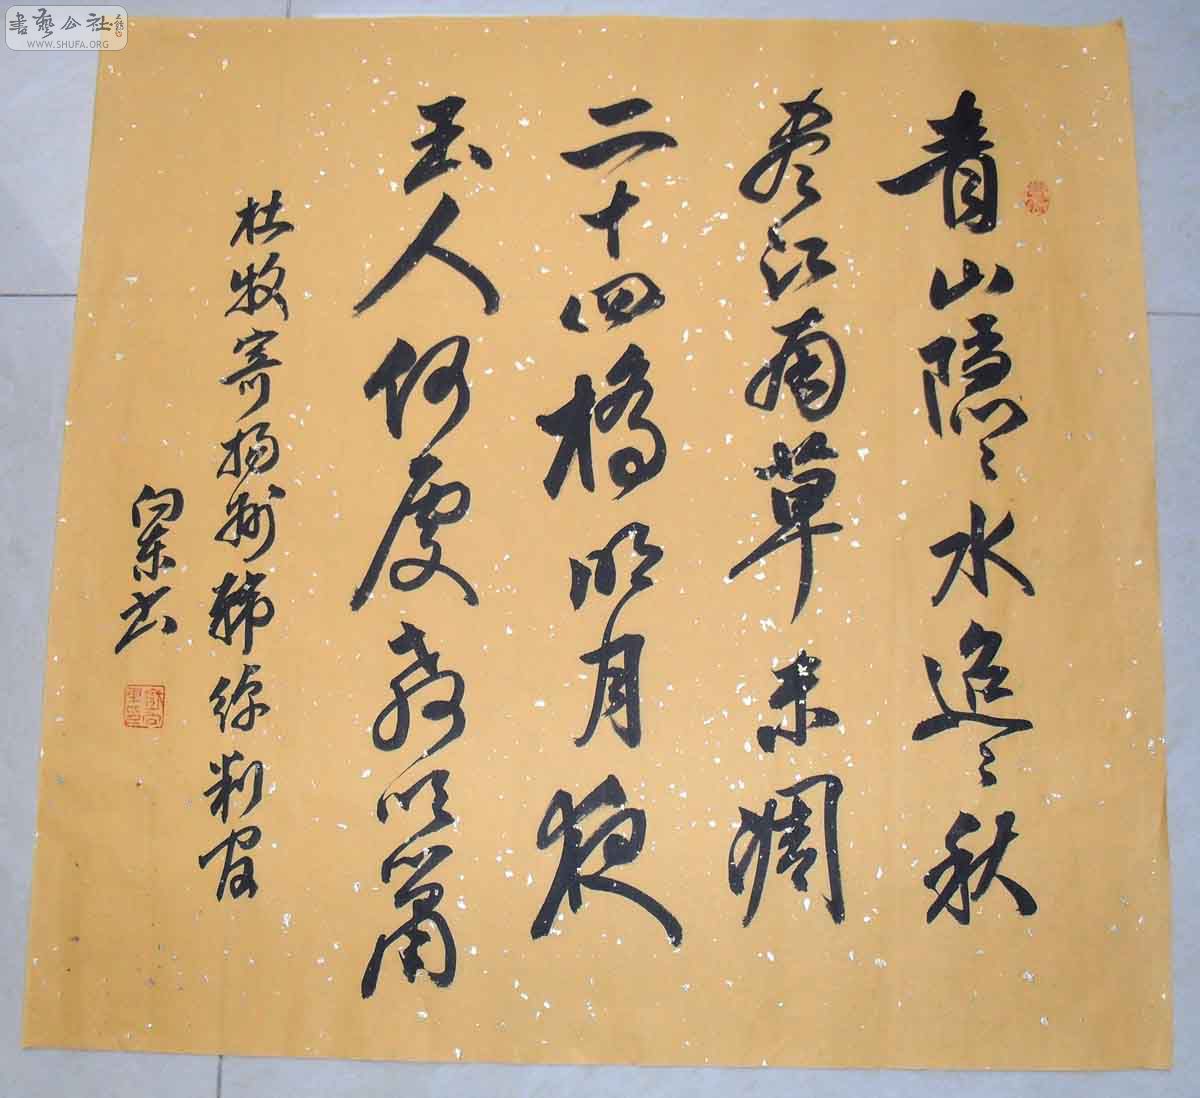 書藝公社
WWW.SHUFA.ORG
青山隐々水迢々秋
尽江南草未凋
二十四橋明月夜
玉人何處教吹箫
杜牧寄揚州韩绰判官
向 书